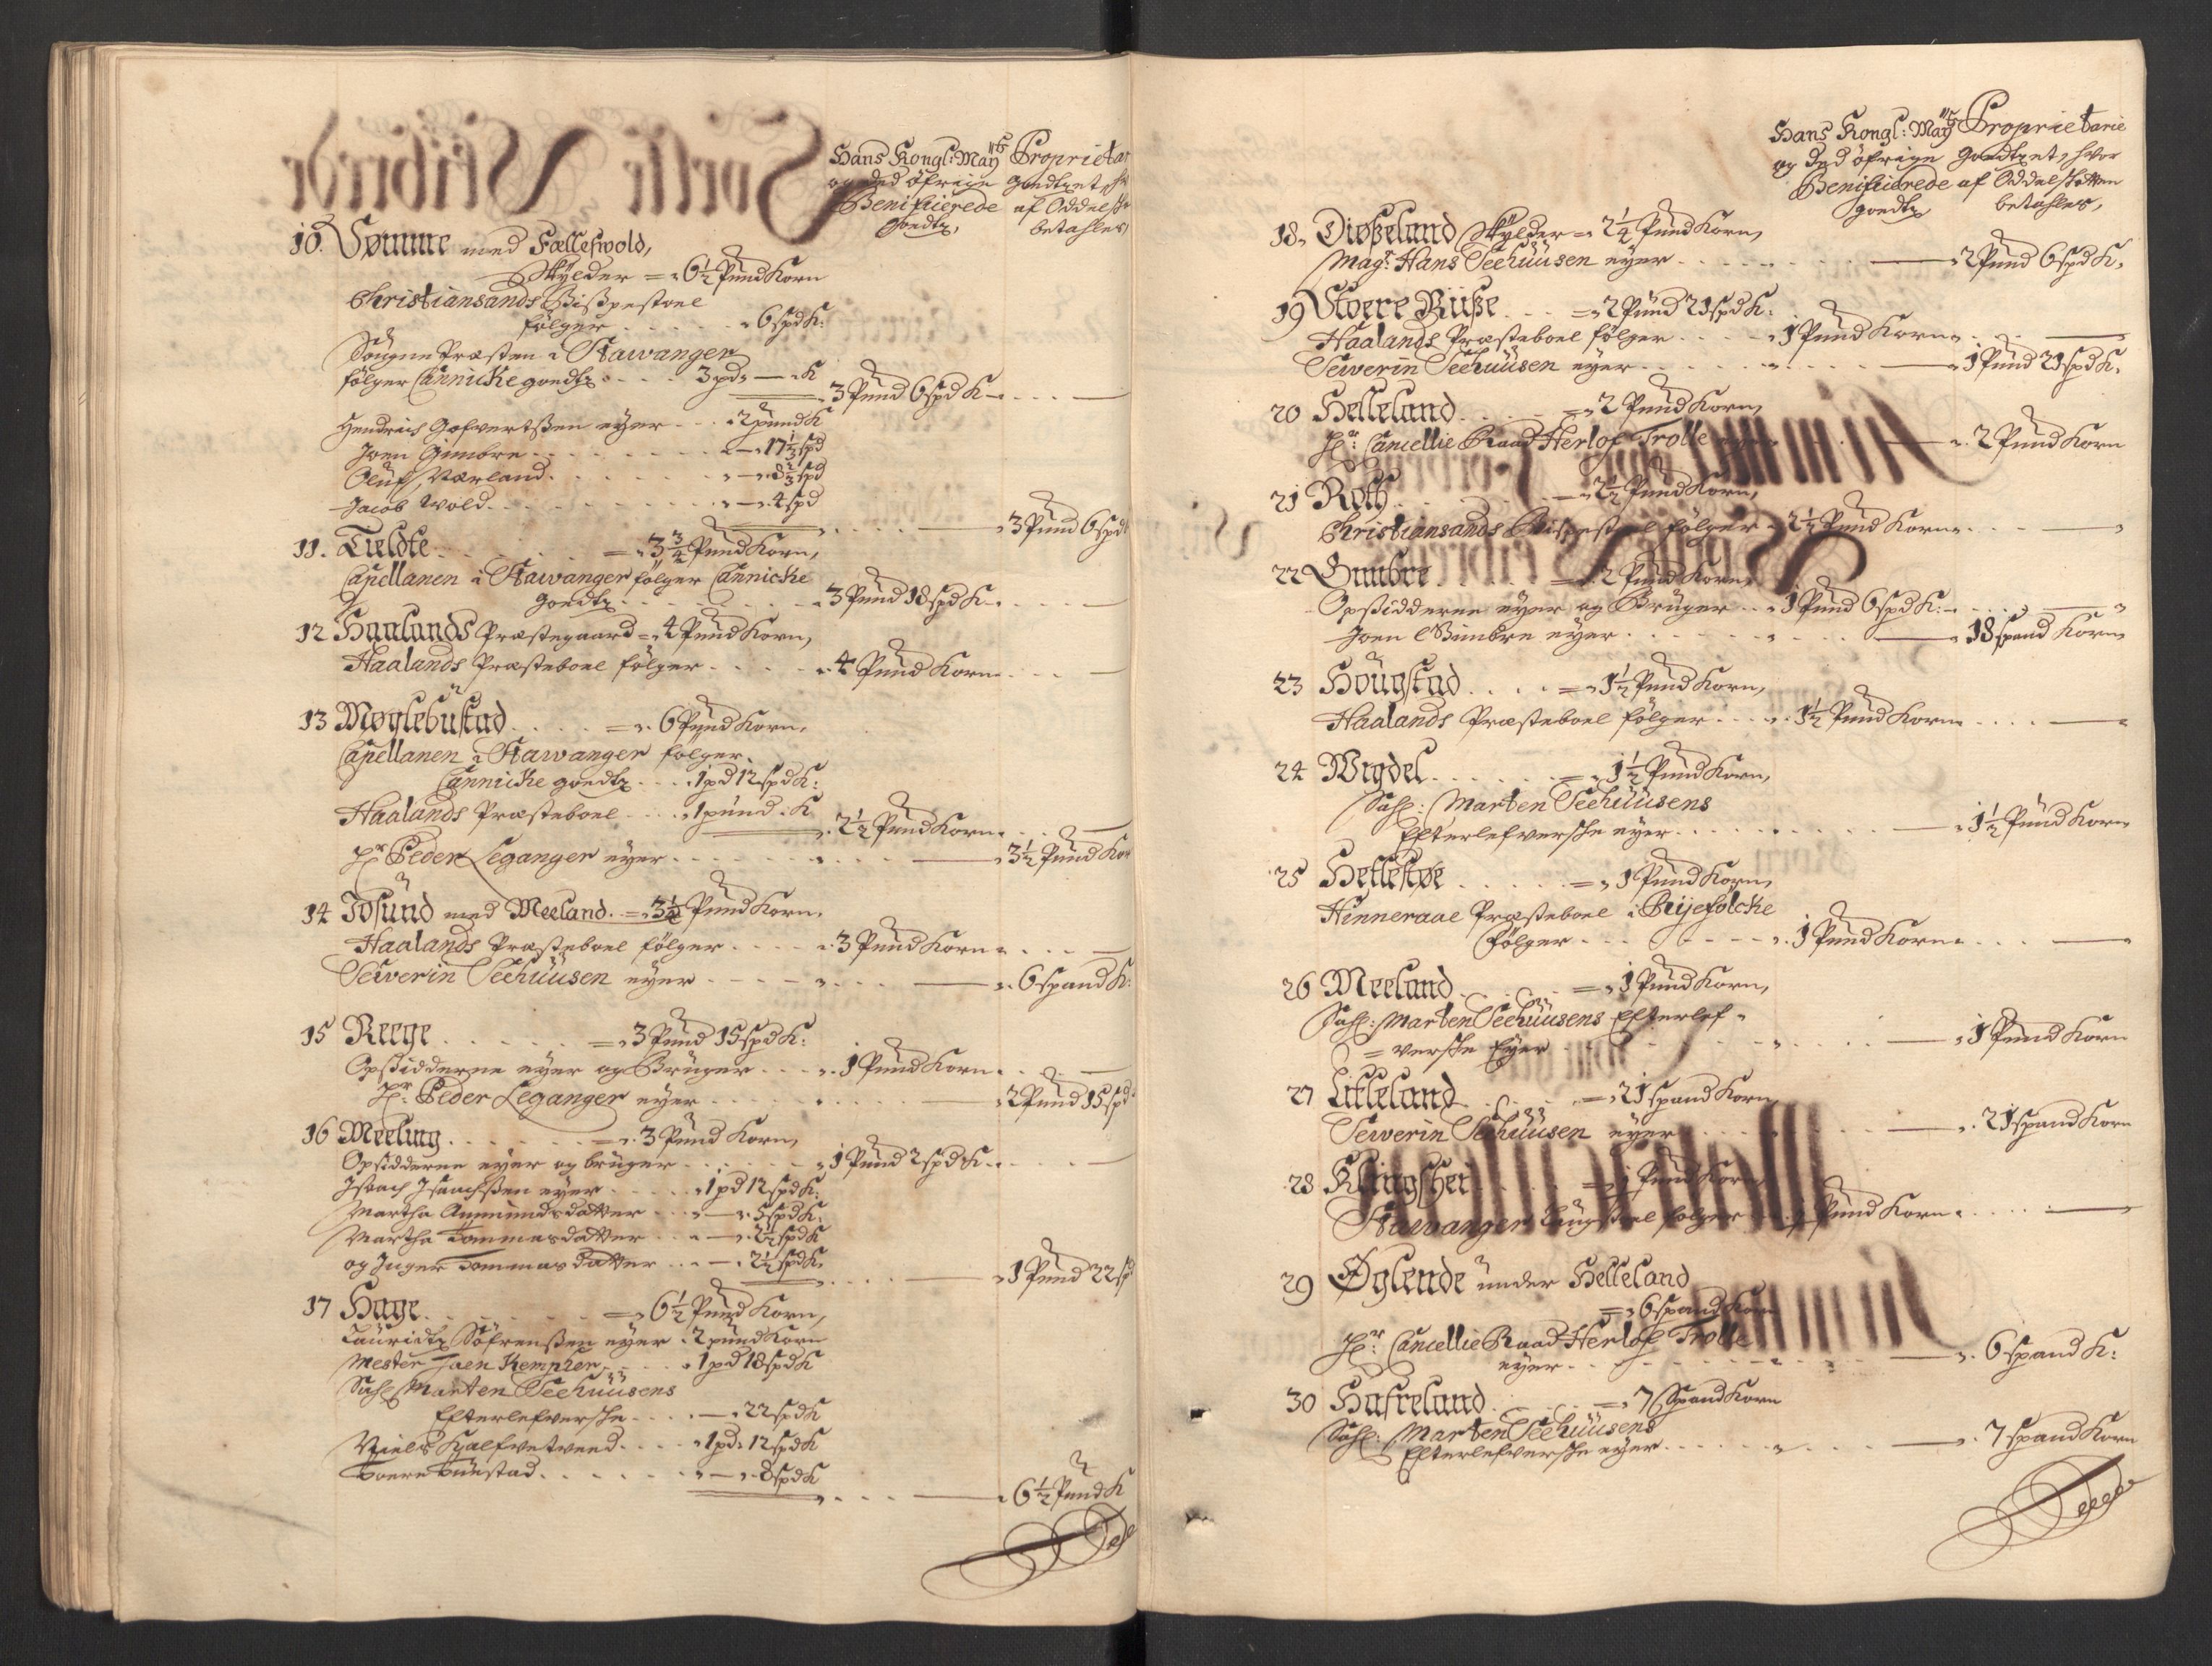 Hans Kongl: May^ts Proprietar
og ded öfrige goedtzet, h
Benificerede af Oddels
goedtz, betahles
10. Sømme med Fællesvold,
Skylder = 6½ Pund Korn
Christiansands Bispestoel
følger . . . 6 spd K:
Sougne Præsten i Stawanger
følger Cannicke goedtz . . . 3 pd, — K
3 Pund 6 spd K
Hendrich Gofvertsen eyer . . . 2 pund K
Joen Gimbre . . . 17⅓ spd
Oluf Værland . . . 8⅔ spd
Jacob Wold . . . 4 spd
3 Pund 6 spd
11. Tieldte . . . = 3¾ Pund Korn,
Capellanen i Stawanger følger Cannicke
goedtz . . . 3 Pund 18 spd K
12 Haalands Præstegaard = 4 Pund Korn,
Haalands Præsteboel følger . . . 4 Pund Korn
13 Møglebustad . . . = 6 Pund Korn,
Capellanen i Stawanger følger,
Cannicke goedtz . . . 1 pd 12 spd K:
Haalands Præsteboel . . . 1 pund K
2½ Pund Korn
Hr Peder Leganger eyer . . . 3½ Pund Kor
14 Josund med Meeland = 3¼ Pund Korn,
Haalands Præsteboel følger . . . 3 Pund Korn
Severin Seehuusen eyer . . . 6 spand K:
15 Reege . . . = 3 Pund 15 spd K:
Opsidderne eyer og Bruger . . . 1 Pund Korn
Hr Peder Leganger eyer . . . 2 Pund 15 spd
16 Meeling . . . = 3 Pund Korn,
Opsidderne eyer og bruger . . . 1 Pund 2 spd K
Isaach Isaachsen eyer . . . 1 pd 12 spd K:
Martha Aamundsdatter . . . — 5 spd K:
Martha Tommasdatter . . . — 2½ spd K
og Inger Tommasdatter . . . — 2½ spd K
1 Pund 22 sp
17 Hage . . . = 6½ Pund Korn,
Lauridtz Søfrensen eyer 2 pund Korn
Mester Joen Kempher . . . 1 pd 18 spd K
Sahl Marten Seehuusens
Efterlefverske . . . — 22 spd K
Niels Kalfvetveed . . . 1 pd 12 spd K
Toere Tuestad . . . — 8 spd K
6½ Pund K
Hans Kongl: May^ts Proprietarie
og ded öfrige goedtzet, hvor
Benificerede af Oddelskatten
goedtz betahles,
18. Diøßeland Skylder = 2¼ Pund Korn,
Magr Hans Seehuusen eyer . . . 2 Pund 6 spd K,
19 Stoere Riiße . . . = 2 Pund 21 spd K:
Haalands Præsteboel følger . . . 1 Pund Korn
Severin Seehuusen eyer . . . 1 Pund 21 spd K,
20 Helleland . . . = 2 Pund Korn,
Hr Cancellie Raad Herlof Trolle . . . 2 Pund Korn
21 Roth . . . = 2½ Pund Korn,
Christiansands Bispestoel følger 2½ Pund Korn
22 Gimbre . . . = 2 Pund Korn,
Opsidderne eyer og Bruger . . . 1 Pund 6 spd K:
Joen Gimbre eyer . . . 18 spand Korn
23 Hougstad . . . = 1½ Pund Korn,
Haalands Præsteboel følger . . . 1½ Pund Korn
24 Wigdel . . . = 1½ Pund Korn,
Sahl: Marten Seehuusens
Efterlefverske eyer . . . 1½ Pund Korn
25 Hellestøe . . . = 1 Pund Korn,
Hinneraae Præsteboel i Ryefolcke
følger . . . 1 Pund Korn
26 Meeland . . . = 1 Pund Korn,
Sahl: Marten Seehuusens Efterlef=
=verske Eyer . . . 1 Pund Korn
27 Litleland . . . = 21 spand Korn
Severin Seehuusen eyer . . . 21 spand Korn
28 Klingshei . . . = 1 Pund Korn,
Stawanger følger . . . 1 Pund Korn
29 Øglende under Helleland
= 6 spand Korn
Hr Cancellie Raad Herlof Trolle
eyer . . . 6 spand K:
30 Hafreland . . . = 7 Spand Korn
Sahl: Marten Seehuusens
Efterlefverske eyer . . . 7 spand Korn